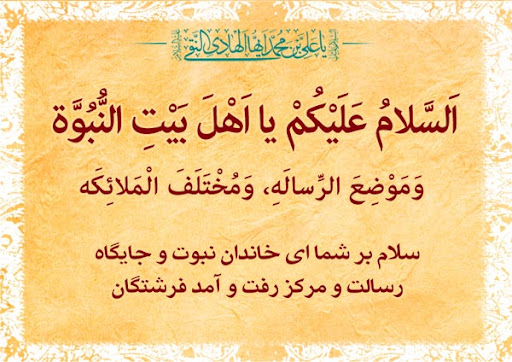 یا علی بن محمد ایها الهادی النقی
اَلسَّلامُ عَلَیْکُمْ یا اَهْلَ بَیْتِ النُّبُوَّة
وَمَوْضِعَ الرِّسالَهِ، وَمُخْتَلَفَ الْمَلائِکَه
سلام بر شما ای خاندان نبوت و جایگاه
رسالت و مرکز رفت و آمد فرشتگان